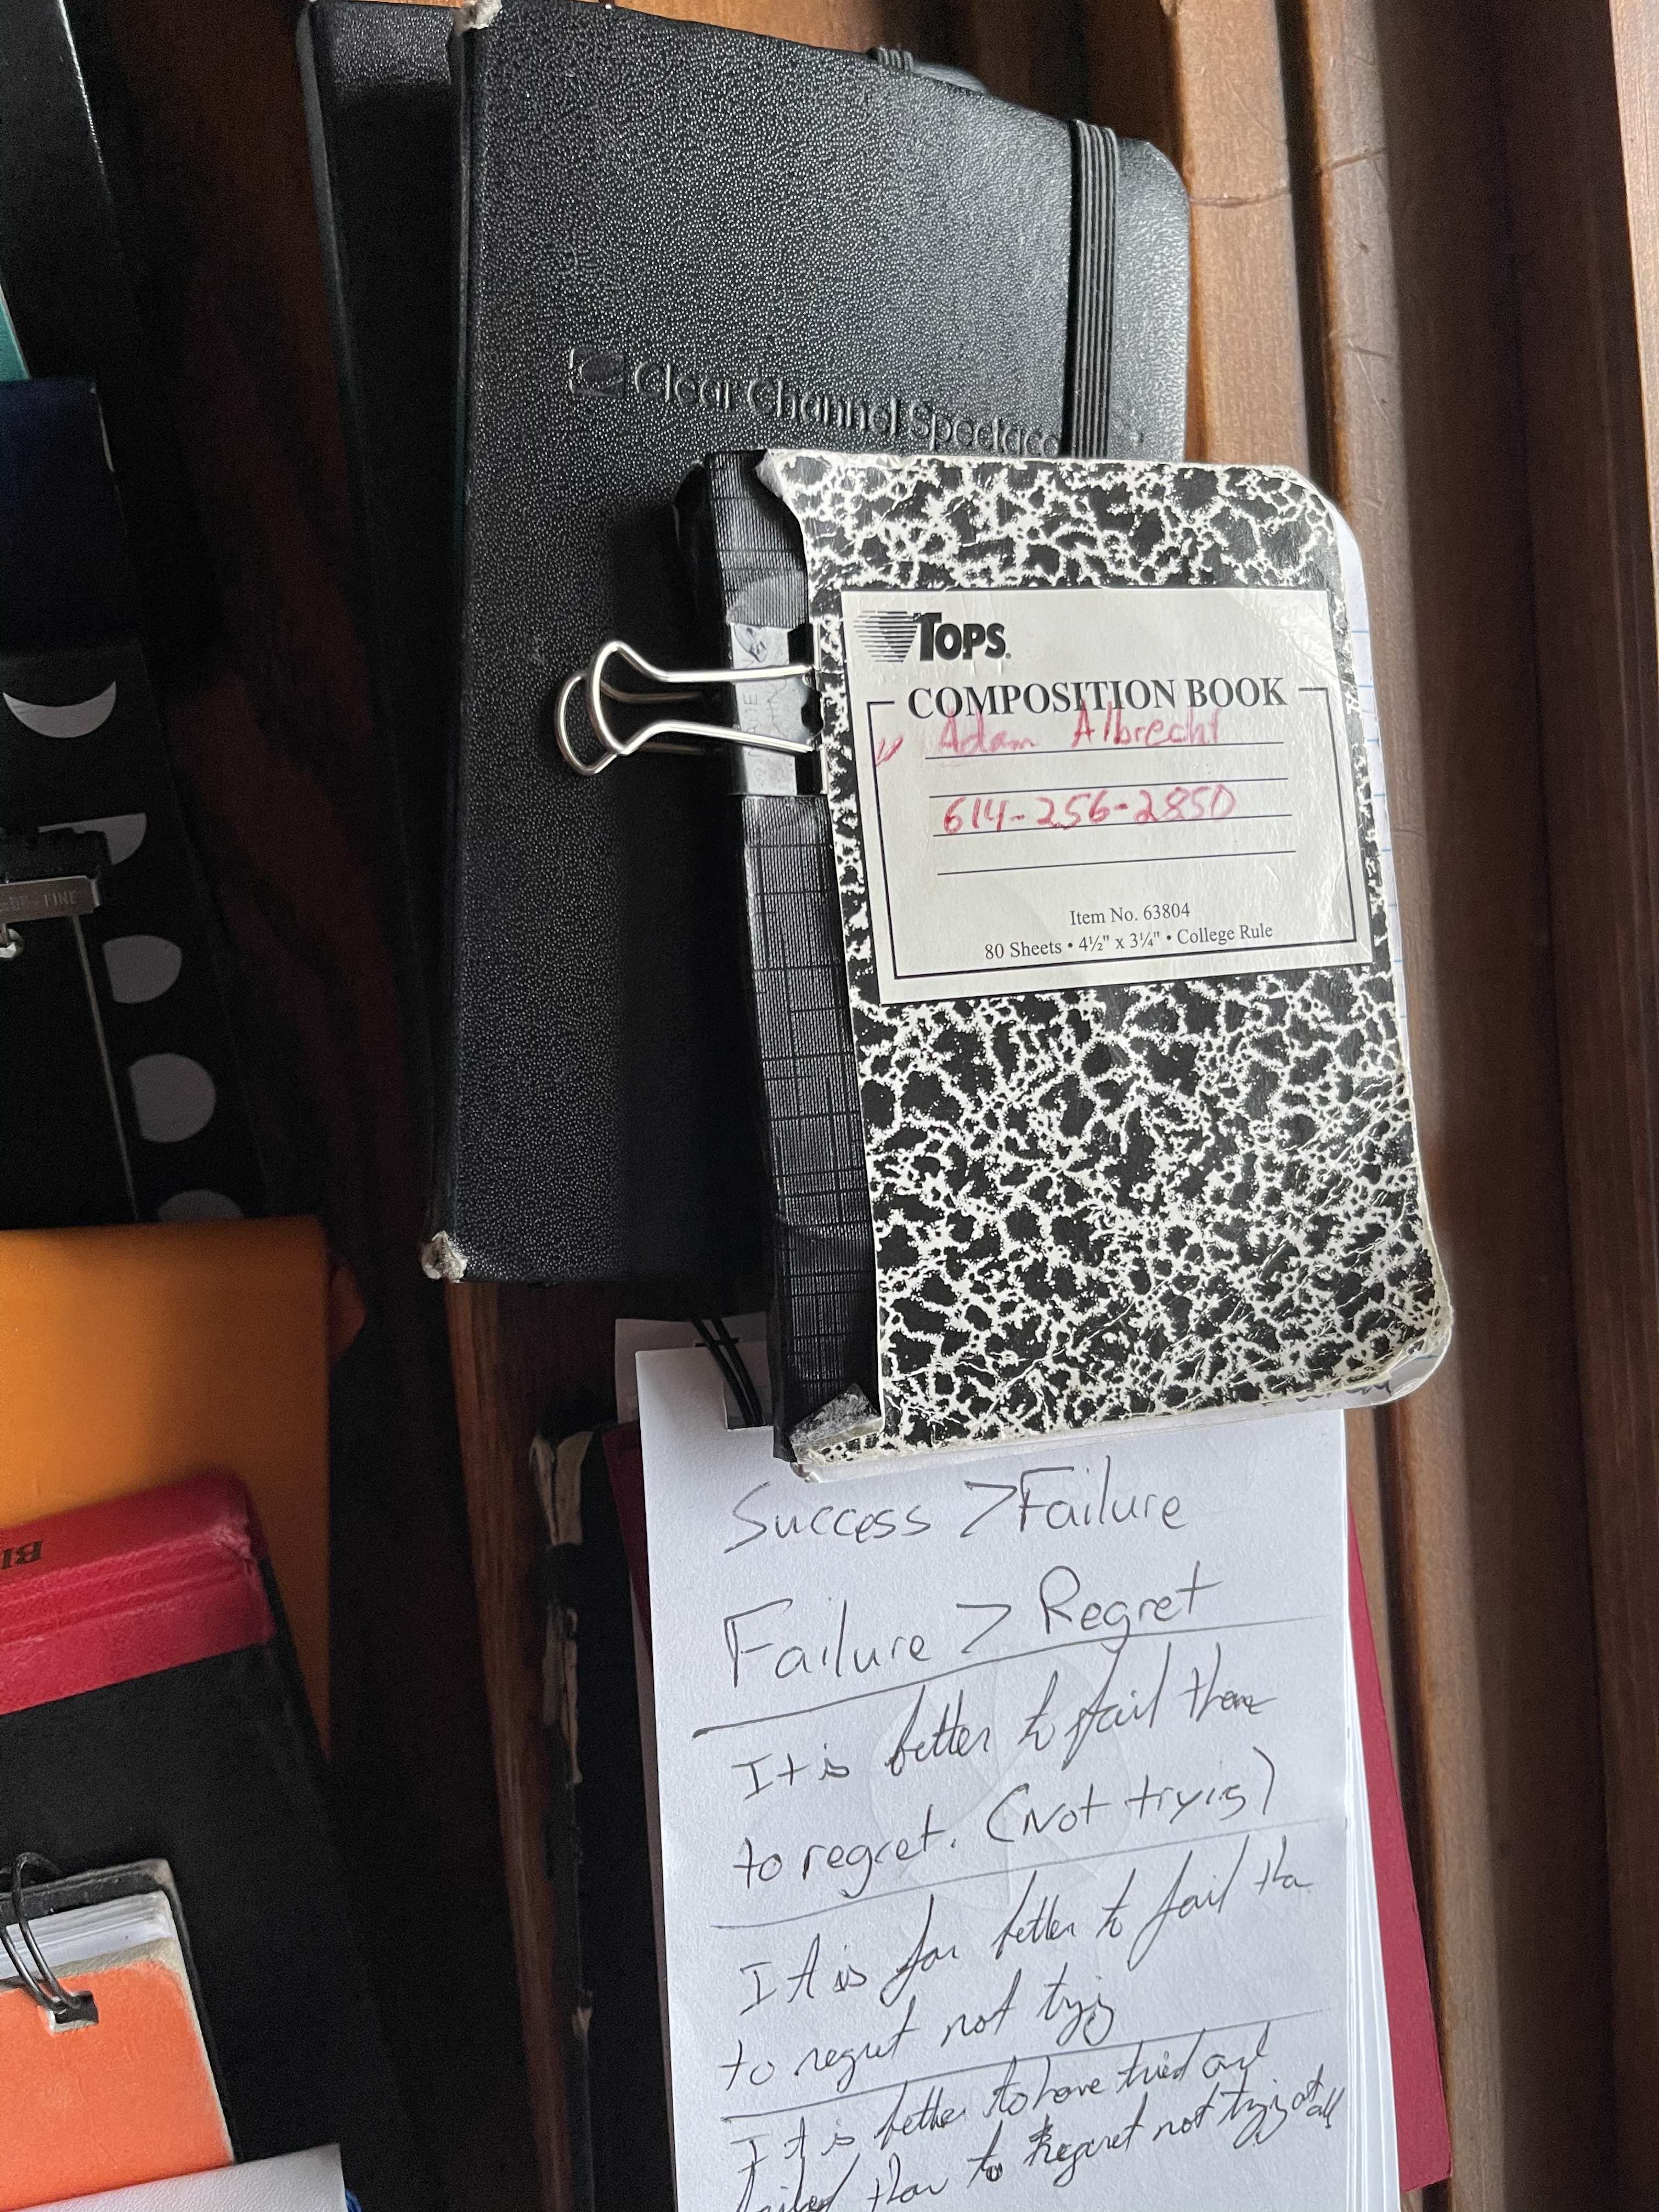 Clear Channel Spectaco
TOPS
COMPOSITION BOOK
Adam Albrecht
614-256-2850
Item No. 63804
80 Sheets • 4½" x 3¼" • College Rule
Success > Failure
Failure > Regret
It is better to fail then
to regret. (Not tryig)
It is far better to fail tha
to regret not tryig
It is better to have tried and
failed than to Regret not tryig at all
BI